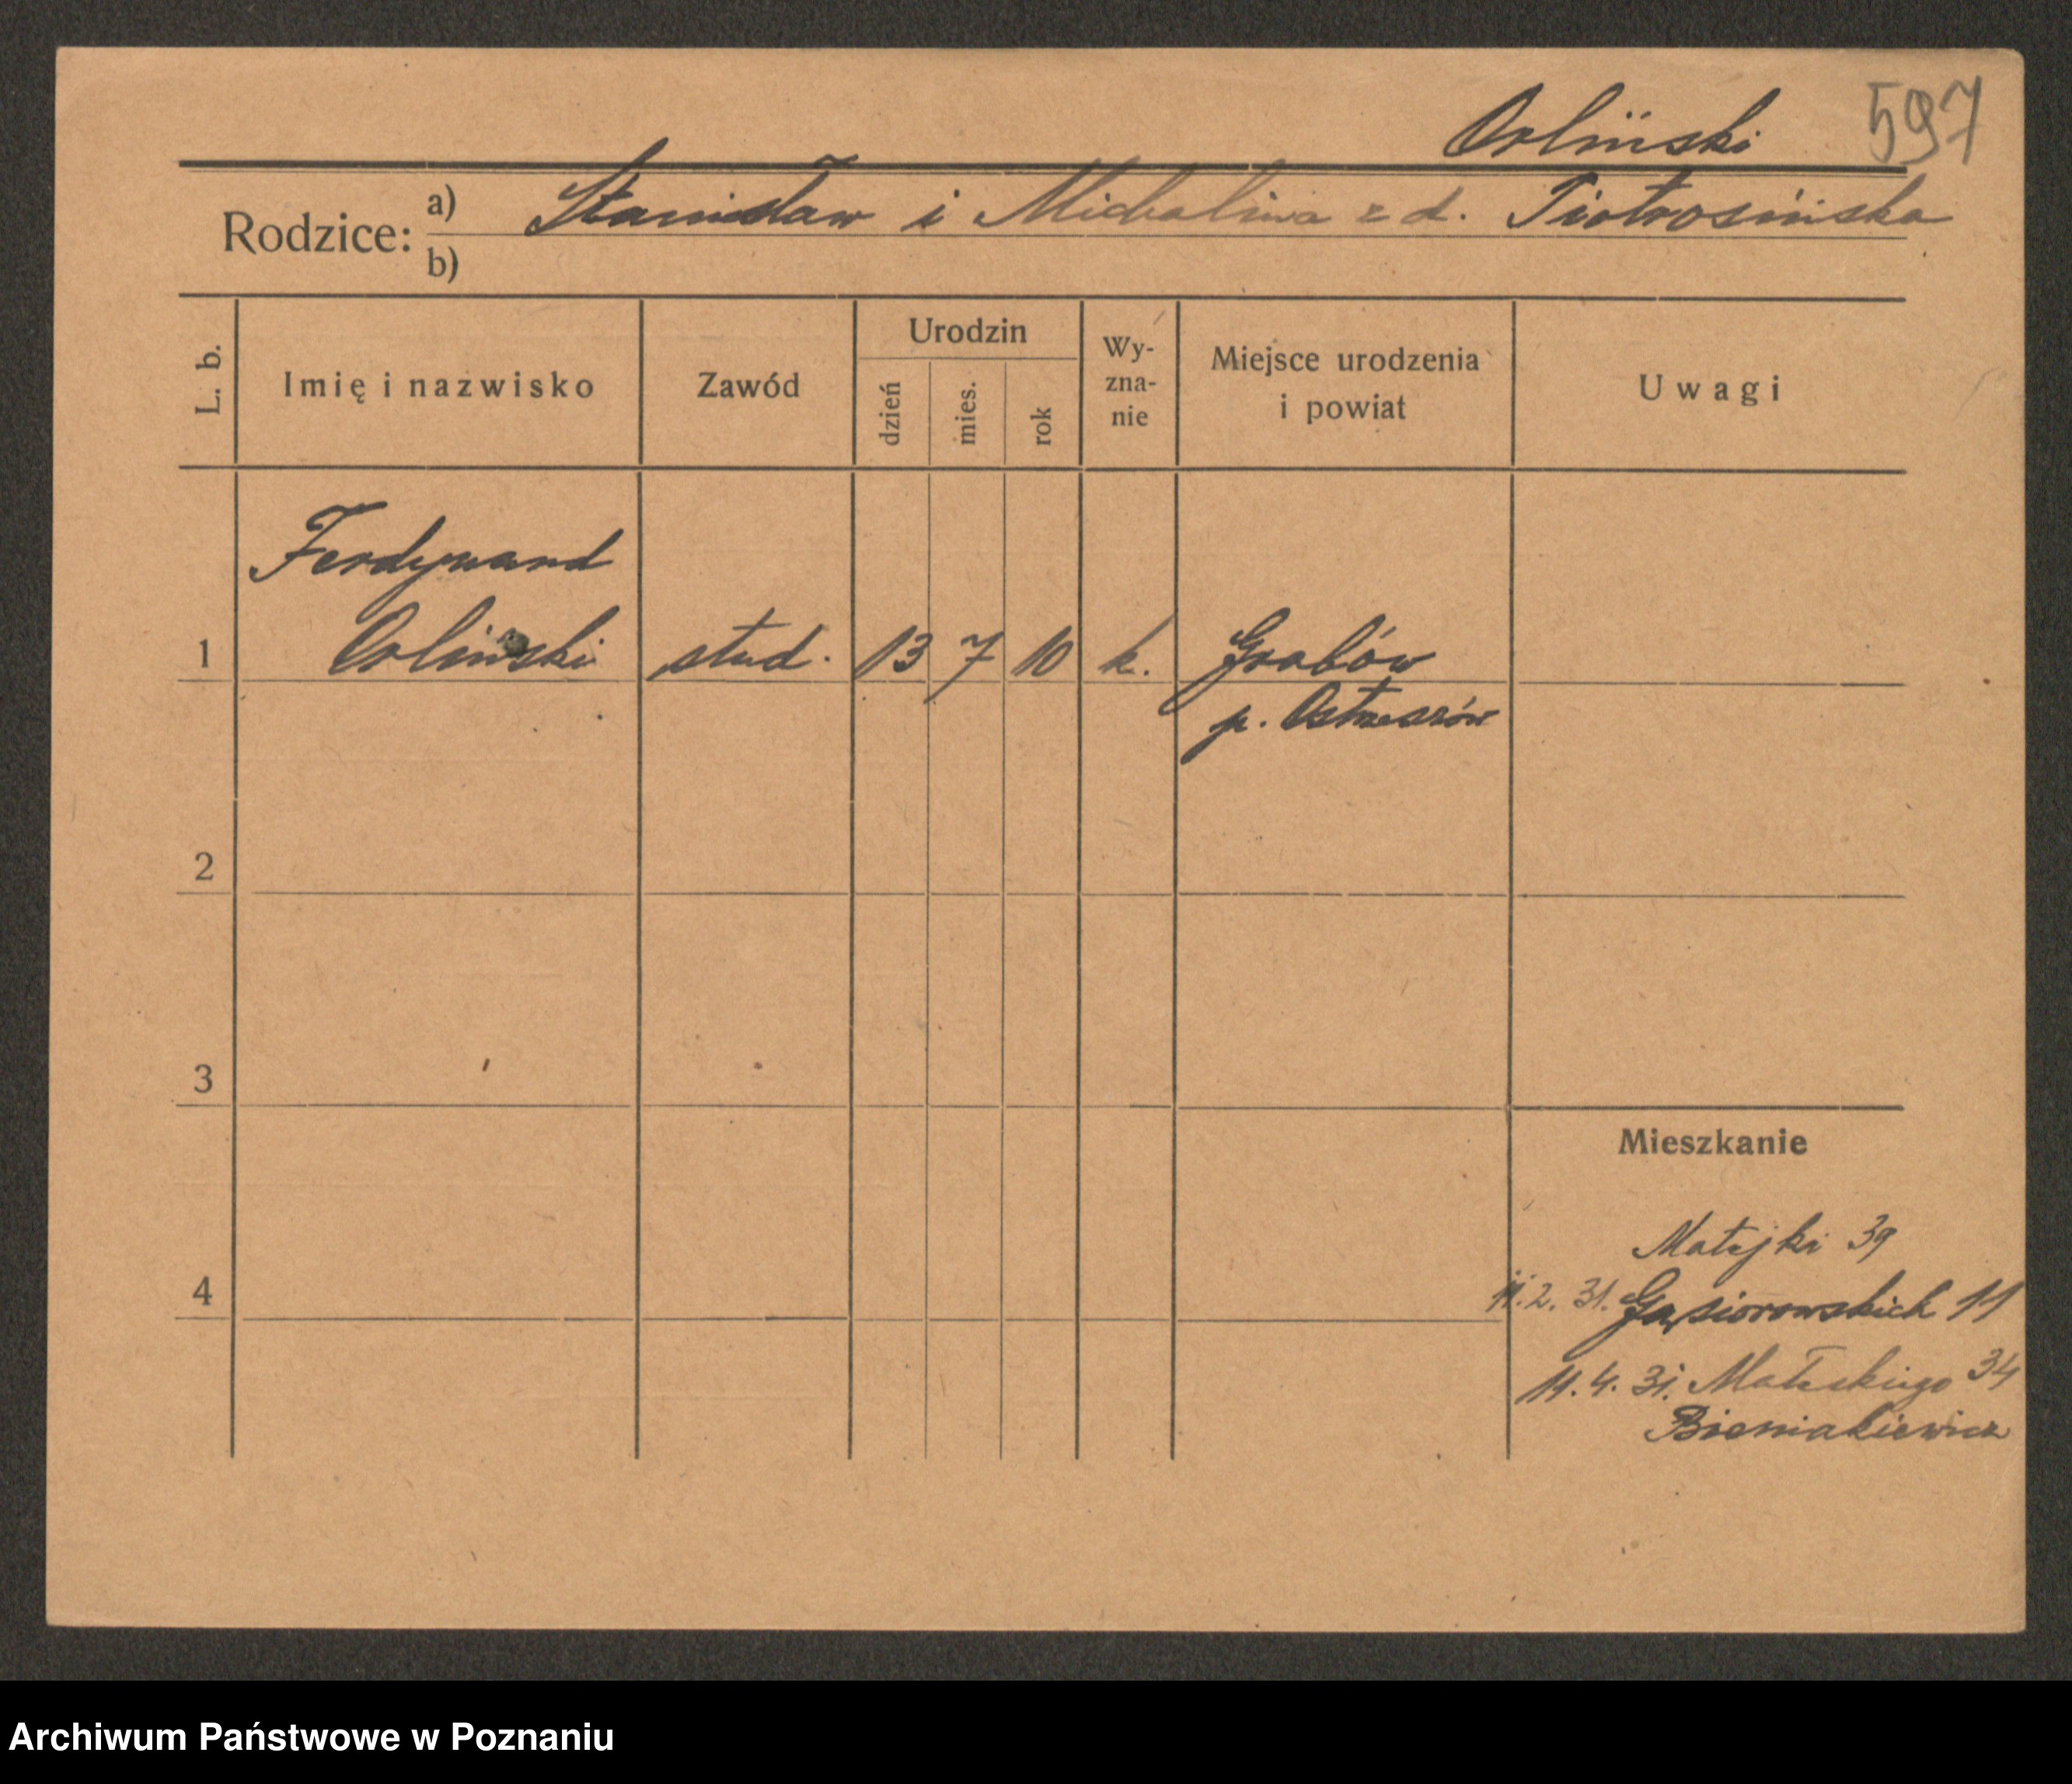 Orliński 597
Rodzice: a) Stanisław i Michalina z d. Piotrosińska
b)
L. b. Imię i nazwisko Zawód Urodzin dzień mies. rok Wy-zna-nie Miejsce urodzenia i powiat Uwagi
Ferdynand
1 Orliński stud. 13 7 10 k. Grabów
p. Ostrzeszów
2
3
Mieszkanie
Matejki 39
4 11.2.31. Gąsiorowskich 11
11.4.31. Małeckiego 34
Bieniakiewicz
Archiwum Państwowe w Poznaniu